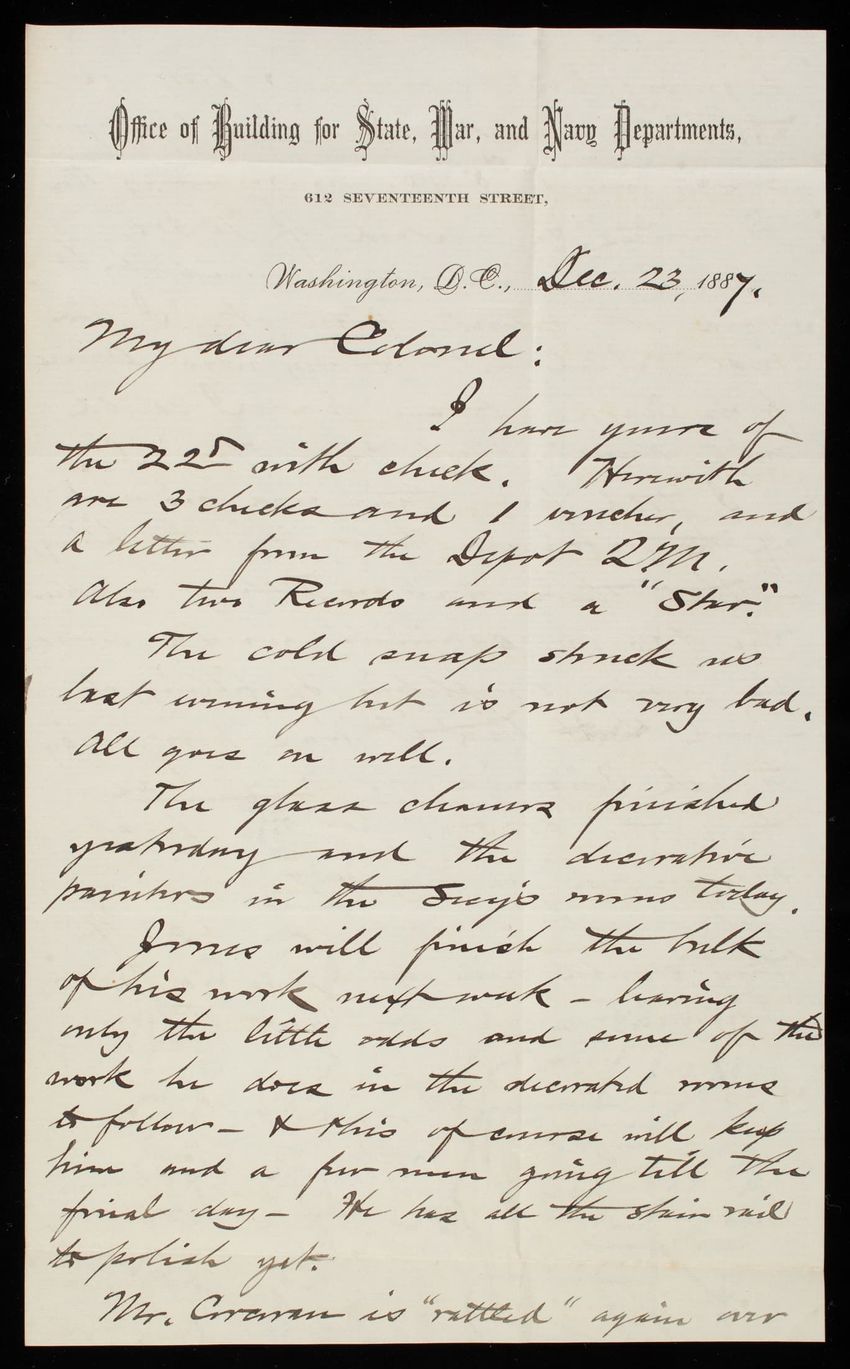 Office of Building for State, War, and Navy Departments,
612 SEVENTEENTH STREET,
Washington, D.C., Dec. 23, 1887.
My dear Colonel:
I have yours of
the 22d with check. Herewith
are 3 checks and 1 voucher, and
a letter from the Depot QM.
Also two Records and a "Star."
The cold snap struck us
last evening but is not very bad.
All goes on well.
The glass cleaners finished
yesterday and the decorative
painters in the Secy's rooms today.
Jones will finish the bulk
of his work next week - leaving
only the little odds and some of the
work he does in the decorated rooms
to follow - & this of course will keep
him and a few men going till the
final day - He has all the stair rail
to polish yet.
Mr. Corcoran is "rattled" again over